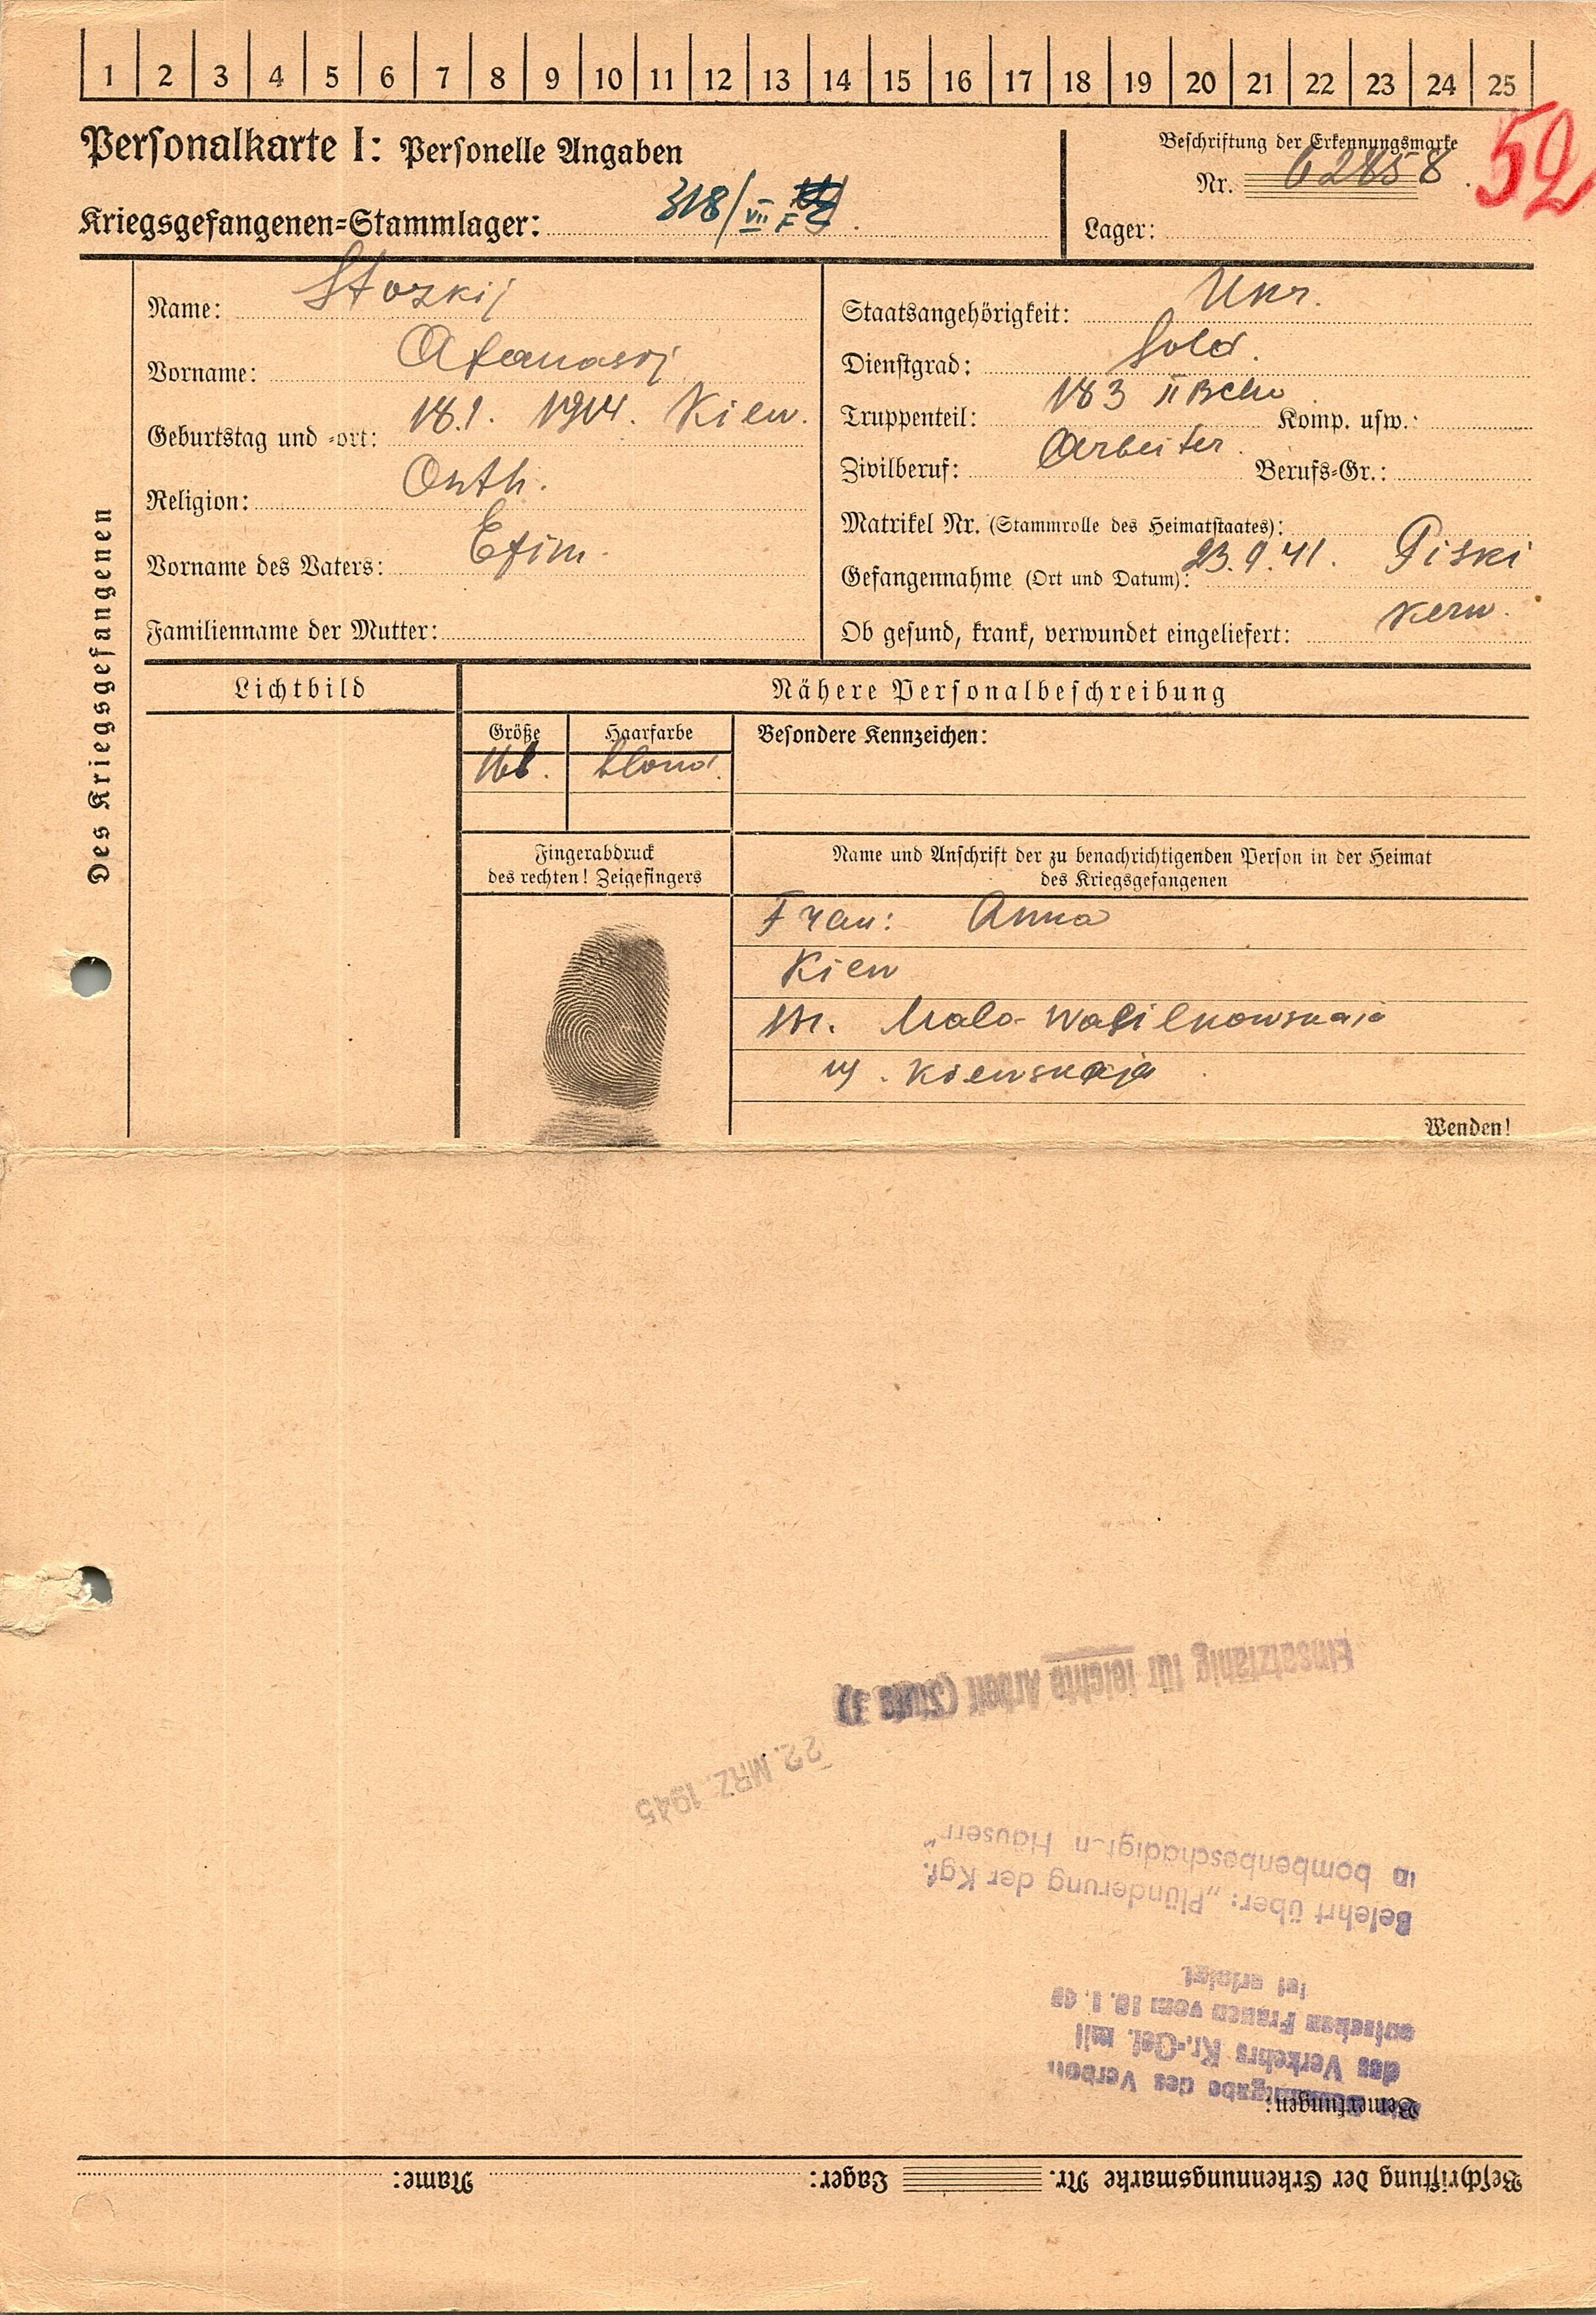 1 2 3 4 5 6 7 8 9 10 11 12 13 14 15 16 17 18 19 20 21 22 23 24 25
Personalkarte I: Personelle Angaben
Kriegsgefangenen=Stammlager: 318/VII F
Beschriftung der Erkennungsmarke
Nr. 62858
52
Lager:
Des Kriegsgefangenen
Name: Stozkij
Vorname: Afanasij
Geburtstag und =ort: 18.1. 1914. Kiew.
Religion: Orth.
Vorname des Vaters: Efim.
Familienname der Mutter:
Staatsangehörigkeit: Ukr.
Dienstgrad: Sold.
Truppenteil: 183 Komp. usw.:
Zivilberuf: Arbeiter. Berufs=Gr.:
Matrikel Nr. (Stammrolle des Heimatstaates):
Gefangennahme (Ort und Datum): 23.9.41. Piski
Ob gesund, krank, verwundet eingeliefert:
Lichtbild
Nähere Personalbeschreibung
Größe Haarfarbe Besondere Kennzeichen:
blond.
Fingerabdruck
des rechten! Zeigefingers
Name und Anschrift der zu benachrichtigenden Person in der Heimat
des Kriegsgefangenen
Frau: Anna
Kiew
Str. Malo-Wasilkowskaja
Kiewskaja
Wenden!
Beschriftung der Erkennungsmarke Nr. Lager: Name:
Bemerkungen:
des Verbots
des Verkehrs Kr.-Gef. mit
deutschen Frauen vom
ist erfolgt.
Belehrt über: „Plünderung der Kgf.
in bombenbeschädigt_n Häusern"
22. MRZ. 1945
Einsatzfähig für leichte Arbeit (Stufe 3)